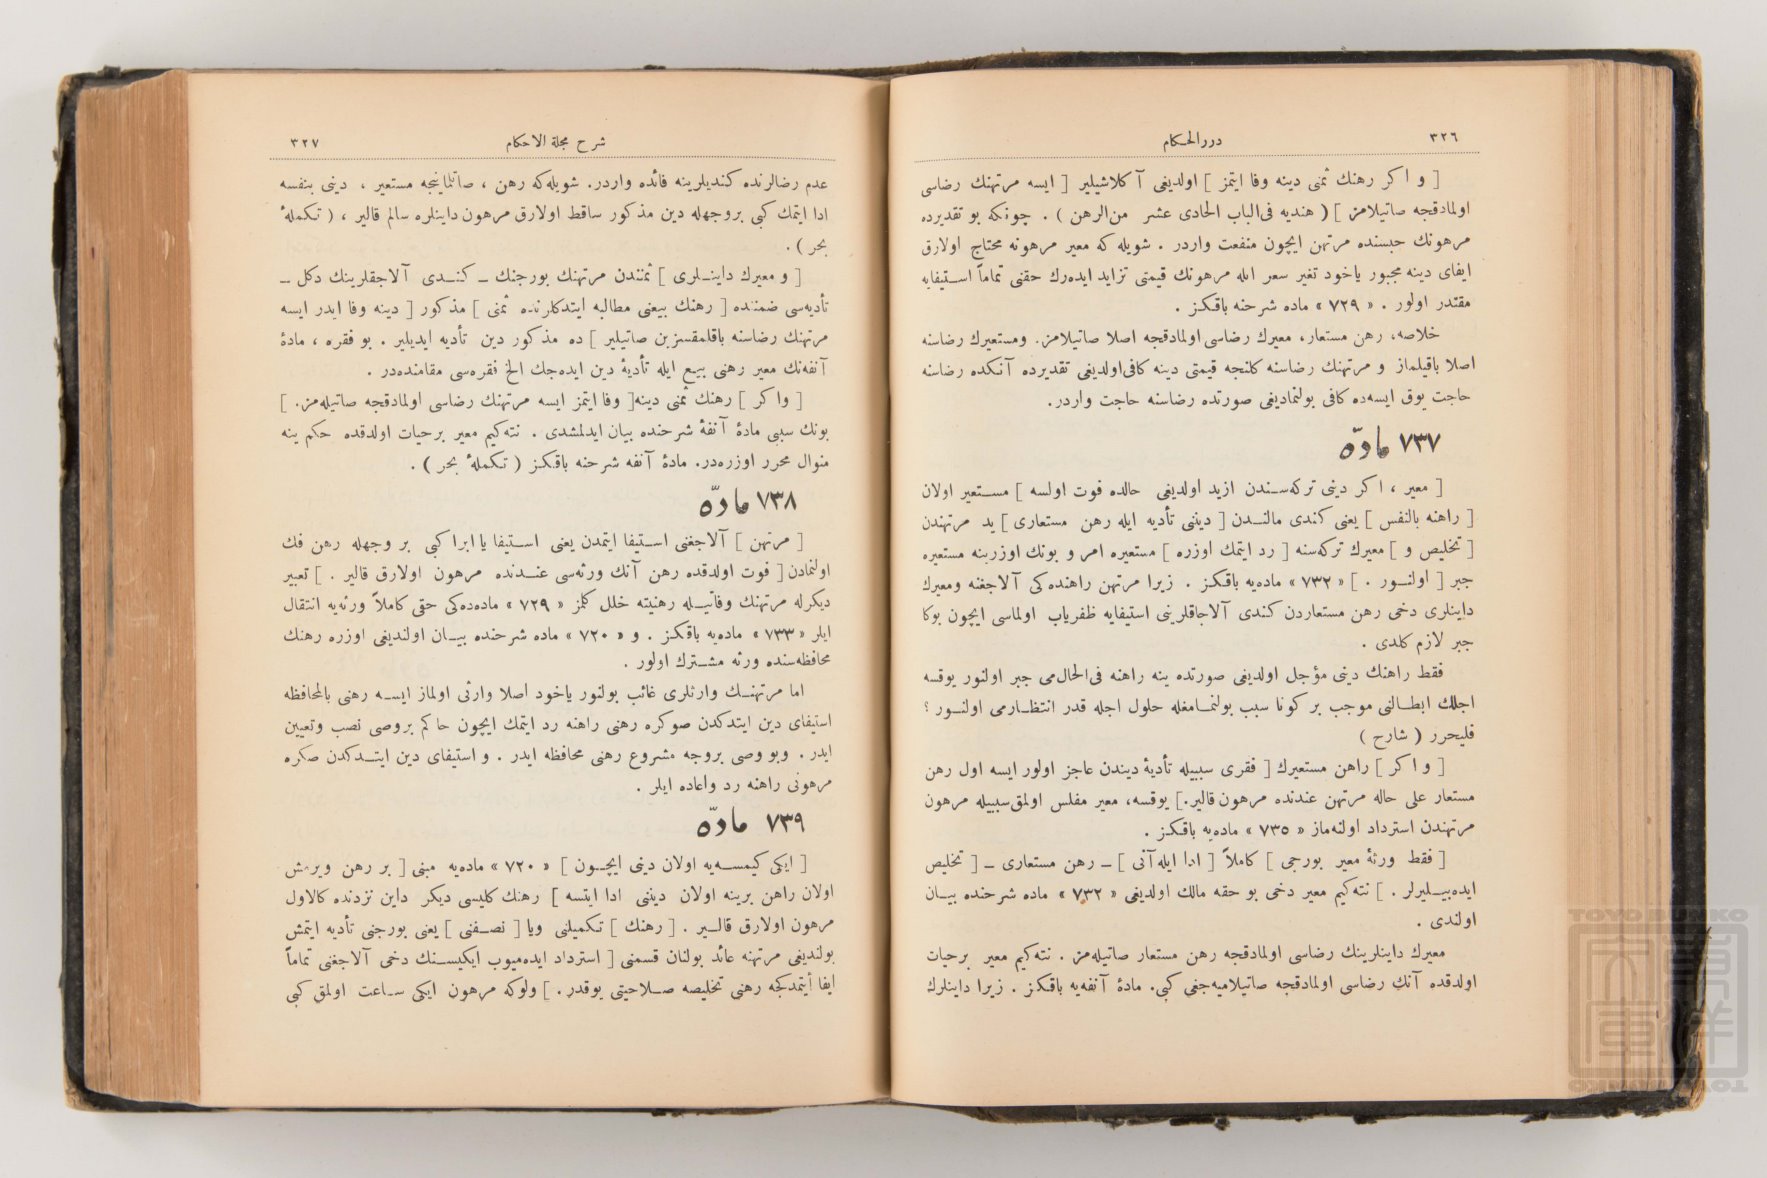 ٣٢٦
دررالحكام
[ و اكر رهنك ثمنی دینه وفا ایتمز ] اولدیغی آكلاشیلیر [ ایسه مرتهنك رضاسی
اولمادقجه صاتیلامز ] ( هندیه فی‌الباب الحادی عشر من‌الرهن ) . چونكه بو تقدیرده
مرهونك حبسنده مرتهن ایچون منفعت واردر . شویله كه معیر مرهونه محتاج اولارق
ایفای دینه مجبور یاخود تغیر سعر ایله مرهونك قیمتی تزاید ایده‌رك حقنی تماماً استیفایه
مقتدر اولور . « ٧٢٩ » ماده شرحنه باقكز .
خلاصه، رهن مستعار، معیرك رضاسی اولمادقجه اصلا صاتیلامز. ومستعیرك رضاسنه
اصلا باقیلماز و مرتهنك رضاسنه كلنجه قیمتی دینه كافی‌اولدیغی تقدیرده آنكده رضاسنه
حاجت یوق ایسه‌ده كافی بولنمادیغی صورتده رضاسنه حاجت واردر.
٧٣٧ مادّه
[ معیر ، اكر دینی تركه‌سندن ازید اولدیغی حالده فوت اولسه ] مستعیر اولان
[ راهنه بالنفس ] یعنی كندی مالندن [ دیننی تأدیه ایله رهن مستعاری ] ید مرتهندن
[ تخلیص و ] معیرك تركه‌سنه [ رد ایتمك اوزره ] مستعیره امر و بونك اوزرینه مستعیره
جبر [ اولنور . ] « ٧٣٢ » ماده‌یه باقكز . زیرا مرتهن راهنده‌كی آلاجغنه ومعیرك
داینلری دخی رهن مستعاردن كندی آلاجاقلرینی استیفایه ظفریاب اولماسی ایچون بوكا
جبر لازم كلدی .
فقط راهنك دینی مؤجل اولدیغی صورتده ینه راهنه فی‌الحال‌می جبر اولنور یوقسه
اجلك ابطالنی موجب بر كونا سبب بولنمامغله حلول اجله قدر انتظارمی اولنور ؟
فلیحرر ( شارح )
[ و اكر ] راهن مستعیرك [ فقری سببیله تأدیۀ دیندن عاجز اولور ایسه اول رهن
مستعار علی حاله مرتهن عندنده مرهون قالیر.] یوقسه، معیر مفلس اولمق‌سببیله مرهون
مرتهندن استرداد اولنه‌ماز « ٧٣٥ » ماده‌یه باقكز .
[ فقط ورثۀ معیر بورجی ] كاملاً [ ادا ایله‌آنی ] ـ رهن مستعاری ـ [ تخلیص
ایده‌بیلیرلر . ] نته‌كیم معیر دخی بو حقه مالك اولدیغی « ٧٣٢ » ماده شرحنده بیان
اولندی .
معیرك داینلرینك رضاسی اولمادقجه رهن مستعار صاتیله‌مز . نته‌كیم معیر برحیات
اولدقده آنك رضاسی اولمادقجه صاتیلامیه‌جغی كبی. مادۀ آنفه‌یه باقكز . زیرا داینلرك
شرح مجلة الاحكام
٣٢٧
عدم رضالرنده كندیلرینه فائده واردر. شویله‌كه رهن ، صاتلماینجه مستعیر ، دینی بنفسه
ادا ایتمك كبی بروجهله دین مذكور ساقط اولارق مرهون داینلره سالم قالیر ، ( تكملۀ
بحر ) .
[ و معیرك داینلری ] ثمنندن مرتهنك بورجنك ـ كندی آلاجقلرینك دكل ـ
تأدیه‌سی ضمننده [ رهنك بیعنی مطالبه ایتدكلرنده ثمنی ] مذكور [ دینه وفا ایدر ایسه
مرتهنك رضاسنه باقلمقسزین صاتیلیر ] ده مذكور دین تأدیه ایدیلیر . بو فقره ، مادۀ
آنفه‌نك معیر رهنی بیع ایله تأدیۀ دین ایده‌جك الخ فقره‌سی مقامنده‌در .
[ واكر ] رهنك ثمنی دینه[ وفا ایتمز ایسه مرتهنك رضاسی اولمادقجه صاتیله‌مز. ]
بونك سببی مادۀ آنفۀ شرحنده بیان ایدلمشدی . نته‌كیم معیر برحیات اولدقده حكم ینه
منوال محرر اوزره‌در. مادۀ آنفه شرحنه باقكز ( تكملۀ بحر ) .
٧٣٨ مادّه
[ مرتهن ] آلاجغنی استیفا ایتمدن یعنی استیفا یا ابرا كبی بر وجهله رهن فك
اولنمادن[ فوت اولدقده رهن آنك ورثه‌سی عندنده مرهون اولارق قالیر . ] تعبیر
دیكرله مرتهنك وفاتیله رهنیته خلل كلمز « ٧٢٩ » ماده‌ده‌كی حقی كاملاً ورثه‌یه انتقال
ایلر « ٧٣٣ » ماده‌یه باقكز . و « ٧٢٠ » ماده شرحنده بیان اولندیغی اوزره رهنك
محافظه‌سنده ورثه مشترك اولور .
اما مرتهنك وارثلری غائب بولنور یاخود اصلا وارثی اولماز ایسه رهنی بالمحافظه
استیفای دین ایتدكدن صوكره رهنی راهنه رد ایتمك ایچون حاكم بروصی نصب وتعیین
ایدر . وبو وصی بروجه مشروع رهنی محافظه ایدر . و استیفای دین ایتدكدن صكره
مرهونی راهنه رد واعاده ایلر .
٧٣٩ مادّه
[ ایكی كیمسه‌یه اولان دینی ایچون ] « ٧٢٠ » ماده‌یه مبنی [ بر رهن ویرمش
اولان راهن برینه اولان دیننی ادا ایتسه ] رهنك كلیسی دیكر داین نزدنده كالاول
مرهون اولارق قالیر . [ رهنك ] تكمیلنی ویا [ نصفنی ] یعنی بورجنی تأدیه ایتمش
بولندیغی مرتهنه عائد بولنان قسمنی [ استرداد ایده‌میوب ایكیسنك دخی آلاجغنی تماماً
ایفا ایتمدكجه رهنی تخلیصه صلاحیتی یوقدر. ] ولوكه مرهون ایكی ساعت اولمق كبی
TOYO BUNKO